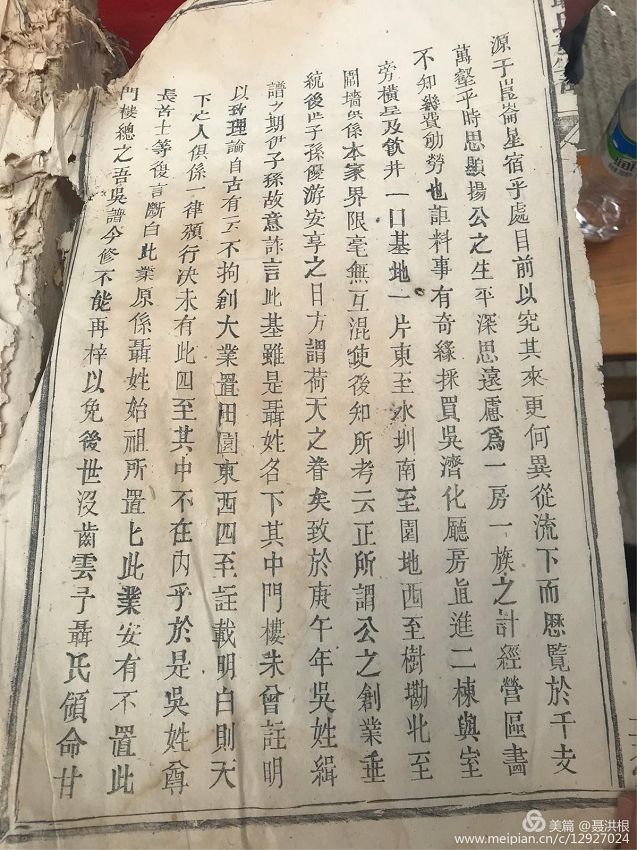 源于崑崙星宿乎處目前以究其來更何異從流下而歷覽於千支
萬壑平時思顯揚公之生平深思遠慮爲一房一族之計經營區畵
不知幾費劬勞也詎料事有奇緣採買吳濟化廳房直進二棟與室
旁橫屋及飲井一口基地一片東至水圳南至園地西至樹墈北至
圍墻俱係本家界限毫無互混使後知所考云正所謂公之創業垂
統後世子孫優游安享之日方謂荷天之眷矣致於庚午年吳姓緝
譜之期伊子孫故意詐言此基雖是聶姓名下其中門樓未曾註明
以致理論自古有云不拘創大業置田園東西四至註載明白則天
下之人俱係一律頒行决未有此四至其中不在內乎於是吳姓尊
長首士等復言斷白此業原係聶姓始祖所置匕此業安有不置此
門樓總之吾吳譜今修不能再梓以免後世沒齒雲子聶氏領命甘
美篇 @聶洪根
www.meipian.cn/c/12927024